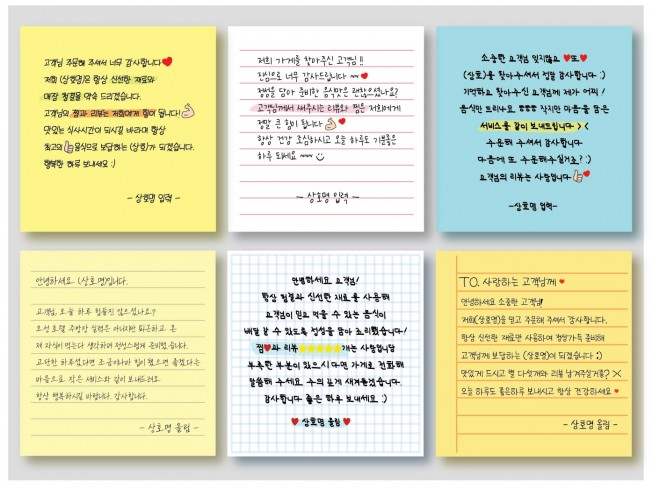 고객님 주문해 주셔서 너무 감사합니다
저희 (상호명)은 항상 신선한 재료와
매장 청결을 약속 드리겠습니다.
고객님의 찜과 리뷰는 저희에게 힘이 됩니다!
맛있는 식사시간이 되시길 바라며 항상
최고의 음식으로 보답하는 (상호)가 되겠습니다.
행복한 하루 보내세요 :)
- 상호명 입력 -
저희 가게를 찾아주신 고객님!!
진심으로 너무 감사드립니다 ~~
정성을 담아 준비한 음식맛은 괜찮으셨나요?
고객님께서 써주시는 리뷰와 찜은 저희에게
정말 큰 힘이 됩니다
항상 건강 조심하시고 오늘 하루도 기분좋은
하루 되세요 ~~
- 상호명 입력 -
소중한 고객님 잊지않고 또
(상호)를 찾아주셔서 정말 감사합니다 :)
기억하고 찾아주신 고객님께 제가 어찌!
음식만 드리나요 ㅠㅠㅠ 작지만 마음을 담은
서비스를 같이 보내드립니다 > <
주문해 주셔 감사합니다
다음에 또 주문해주실거죠? :)
고객님의 리뷰는 사랑입니다
-상호명 입력-
안녕하세요. (상호명)입니다.
고객님, 오늘 하루 힘들진 않으셨나요?
오성 호텔 주방장 실력은 아니지만 퇴근하고 온
제 자식이 먹는다 생각하며 정성스럽게 준비했습니다.
고단한 하루셨다면 조금이나마 힘이 됐으면 좋겠다는
마음으로 작은 서비스와 같이 보내드려요.
항상 행복하시길 바랍니다. 감사합니다.
- 상호명 올림 -
안녕하세요 고객님!
항상 청결과 신선한 재료를 사용해
고객님이 믿고 먹을 수 있는 음식이
배달 갈 수 있도록 정성을 담아 조리했습니다!
찜 와 리뷰 ★★★★★개는 사랑입니다
부족한 부분이 있으시다면 가게로 전화해
말씀해 주세요 주의 깊게 새겨듣겠습니다!
감사합니다 좋은 하루 보내세요 :)
♥ 상호명 올림 ♥
TO. 사랑하는 고객님께 ♥
안녕하세요 소중한 고객님!
저희(상호명)을 믿고 주문해 주셔서 감사합니다.
항상 신선한 재료만 사용하여 정성가득 준비해
고객님께 보답하는 (상호명)이 되겠습니다 :)
맛있게 드시고 별 다섯개와 리뷰 남겨주실거죵? ><
오늘 하루도 좋은하루 보내시고 항상 건강하세요 ♥
- 상호명 올림 -